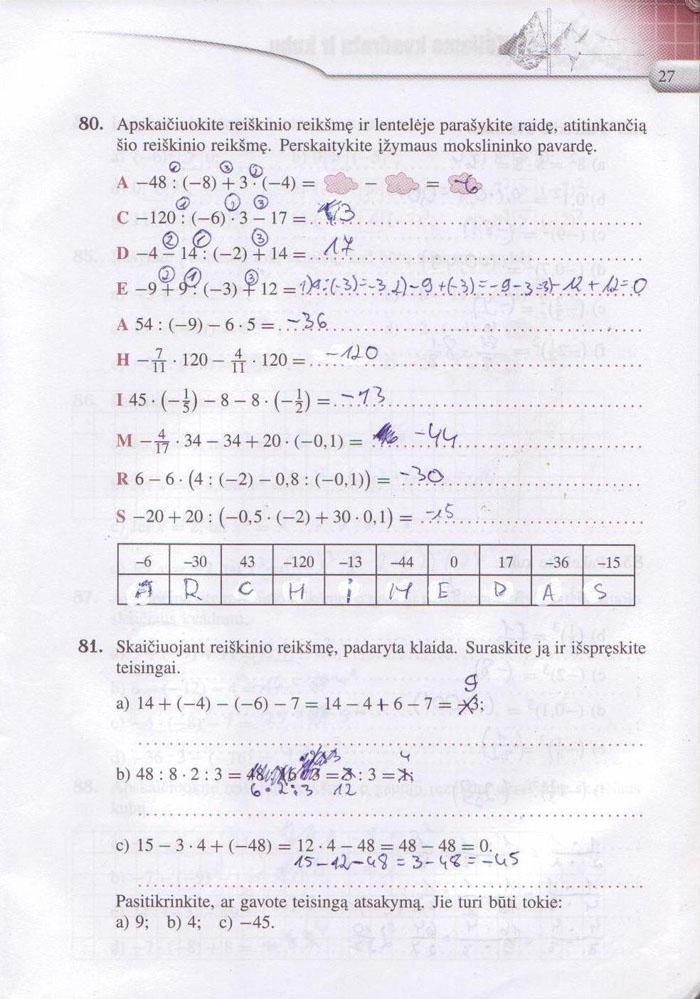 27
80. Apskaičiuokite reiškinio reikšmę ir lentelėje parašykite raidę, atitinkančią
šio reiškinio reikšmę. Perskaitykite įžymaus mokslininko pavardę.
A −48 : (−8) + 3 · (−4) = − = −6
C −120 : (−6) · 3 − 17 = 43
D −4 − 14 : (−2) + 14 = 17
E −9 + 9 : (−3) + 12 = 1) 9:(-3)=-3 2)-9+(-3)=-9-3= 3)-12+12=0
A 54 : (−9) − 6 · 5 = −36
H −7/11 · 120 − 4/11 · 120 = −120
I 45 · (−1/5) − 8 − 8 · (−1/2) = −13
M −4/17 · 34 − 34 + 20 · (−0,1) = −44
R 6 − 6 · (4 : (−2) − 0,8 : (−0,1)) = −30
S −20 + 20 : (−0,5 · (−2) + 30 · 0,1) = −15
−6 −30 43 −120 −13 −44 0 17 −36 −15
A R C H I M E D A S
81. Skaičiuojant reiškinio reikšmę, padaryta klaida. Suraskite ją ir išspręskite
teisingai.
9
a) 14 + (−4) − (−6) − 7 = 14 − 4 + 6 − 7 = −3;
4
b) 48 : 8 · 2 : 3 = 48 : 16 : 3 = 3 : 3 = 1;
6 · 2 : 3 12
c) 15 − 3 · 4 + (−48) = 12 · 4 − 48 = 48 − 48 = 0.
15−12−48 = 3−48 = −45
Pasitikrinkite, ar gavote teisingą atsakymą. Jie turi būti tokie:
a) 9; b) 4; c) −45.